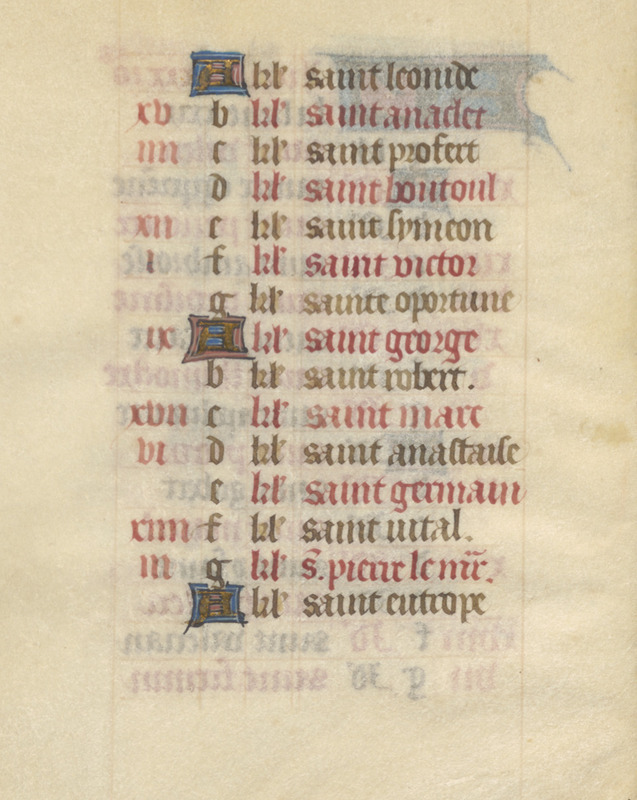 A kl' saint leonide
xv b kl' saint anaclet
iiii c kl' saint profert
d kl' saint boutoul
xii e kl' saint symeon
i f kl' saint victor
g kl' sainte oportune
ix A kl' saint george
b kl' saint robert.
xvii c kl' saint marc
vi d kl' saint anastaise
e kl' saint germain
xiiii f kl' saint vital.
iii g kl' s. pierre le mr̄.
A kl' saint eutrope